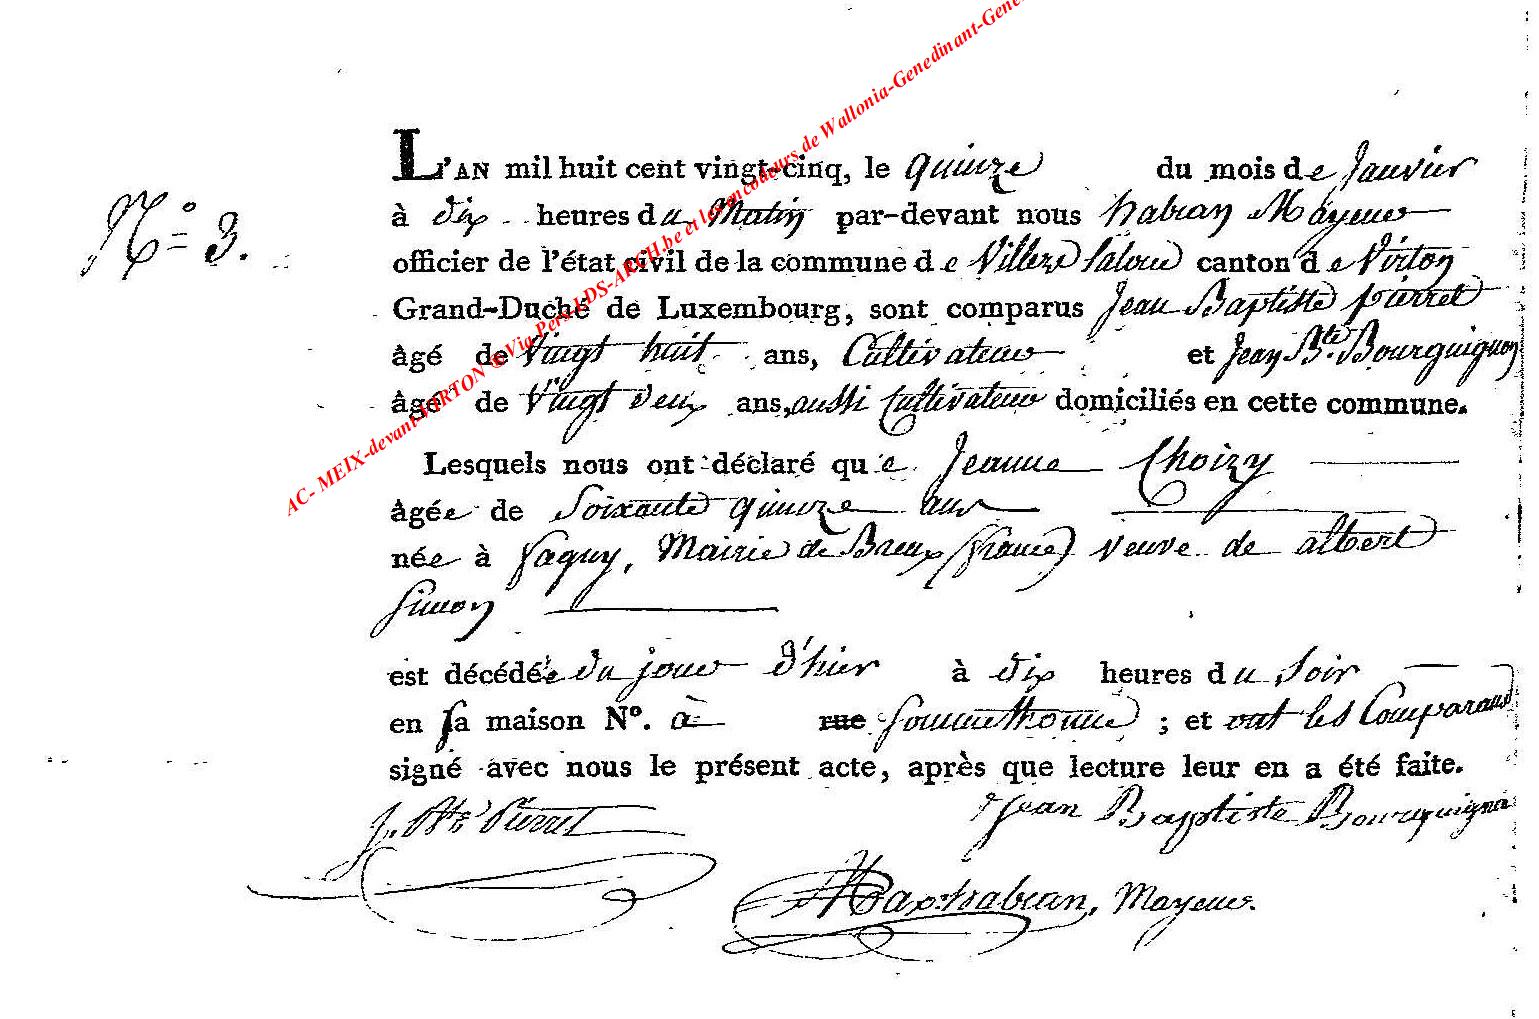 AC- MEIX-devant-VIRTON ® Via Pers LDS-ARCH.be et les encodeurs de Wallonia-Genedinant-Gene
N.º 3.
L'AN mil huit cent vingt-cinq, le quinze du mois de Janvier
à dix heures du Matin par-devant nous habran Mayeur
officier de l'état civil de la commune de Villers laloue canton de Virton
Grand-Duché de Luxembourg, sont comparus Jean Baptiste pierret
âgé de Vingt huit ans, Cultivateur et Jean Bte. Bourguignon
âgé de Vingt deux ans, aussi Cultivateur domiciliés en cette commune.
Lesquels nous ont déclaré que Jeanne Choizy
âgée de Soixante quinze ans
née à fagny, Mairie de Breux (france) veuve de albert
Simon
est décédée du jour d'hier à dix heures du Soir
en sa maison Nº. à rue Sommethonne ; et ont les Comparans
signé avec nous le présent acte, après que lecture leur en a été faite.
J. Bte Pierret
Jean Baptiste Bourguignon
habran, Mayeur.